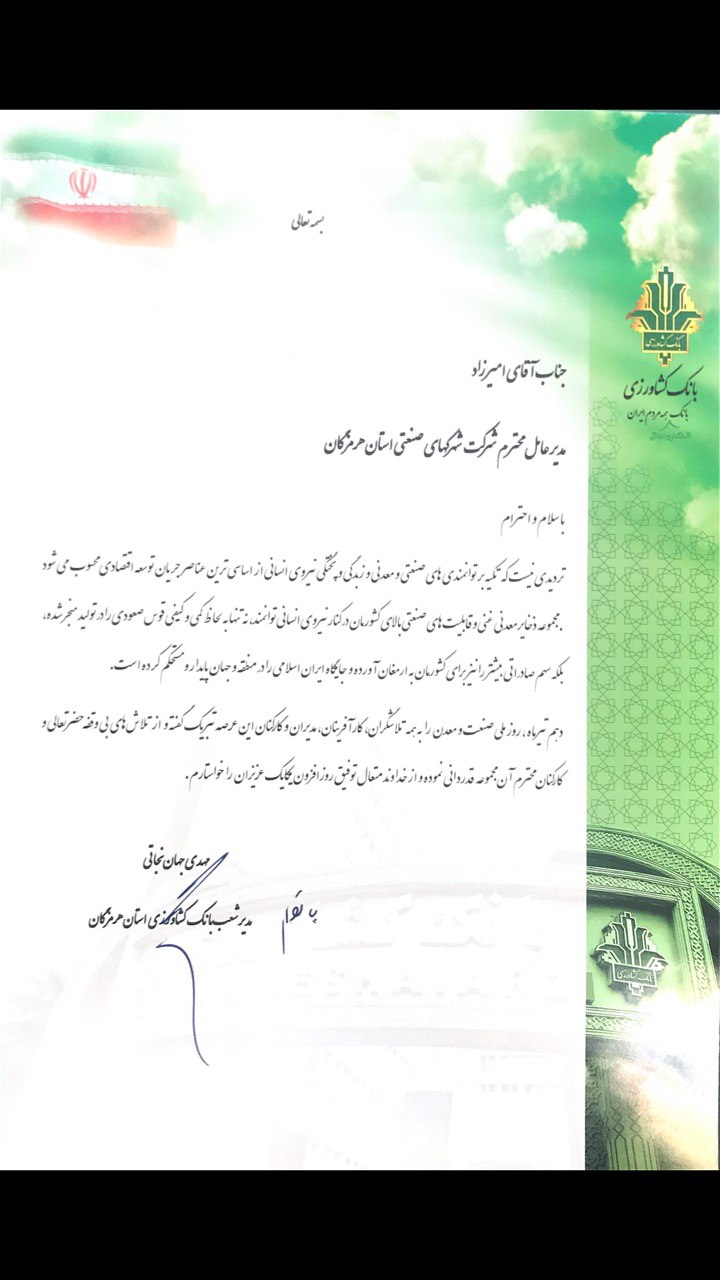 بسمه تعالی
بانک کشاورزی
بانک کشاورزی
بانک همه مردم ایران
جناب آقای امیرزاد
مدیر عامل محترم شرکت شهرکهای صنعتی استان هرمزگان
با سلام و احترام
تردیدی نیست که تکیه بر توانمندی های صنعتی و معدنی و زبدگی و پختگی نیروی انسانی از اساسی ترین عناصر جریان توسعه اقتصادی محسوب می شود
. مجموعه ذخایر معدنی غنی و قابلیت های صنعتی بالای کشورمان در کنار نیروی انسانی توانمند، نه تنها به لحاظ کمی و کیفی قوس صعودی را در تولید منجر شده،
بلکه سهم صادراتی بیشتر را نیز برای کشورمان به ارمغان آورده و جایگاه ایران اسلامی را در منطقه و جهان پایدار و مستحکم کرده است.
دهم تیرماه ، روز ملی صنعت و معدن را به همه تلاشگران، کارآفرینان، مدیران و کارکنان این عرصه تبریک گفته و از تلاش های بی وقفه حضرتعالی و
کارکنان محترم آن مجموعه قدردانی نموده و از خداوند متعال توفیق روز افزون یکایک عزیزان را خواستارم .
مهدی جهان نجاتی
مدیر شعب بانک کشاورزی استان هرمزگان
بانک کشاورزی